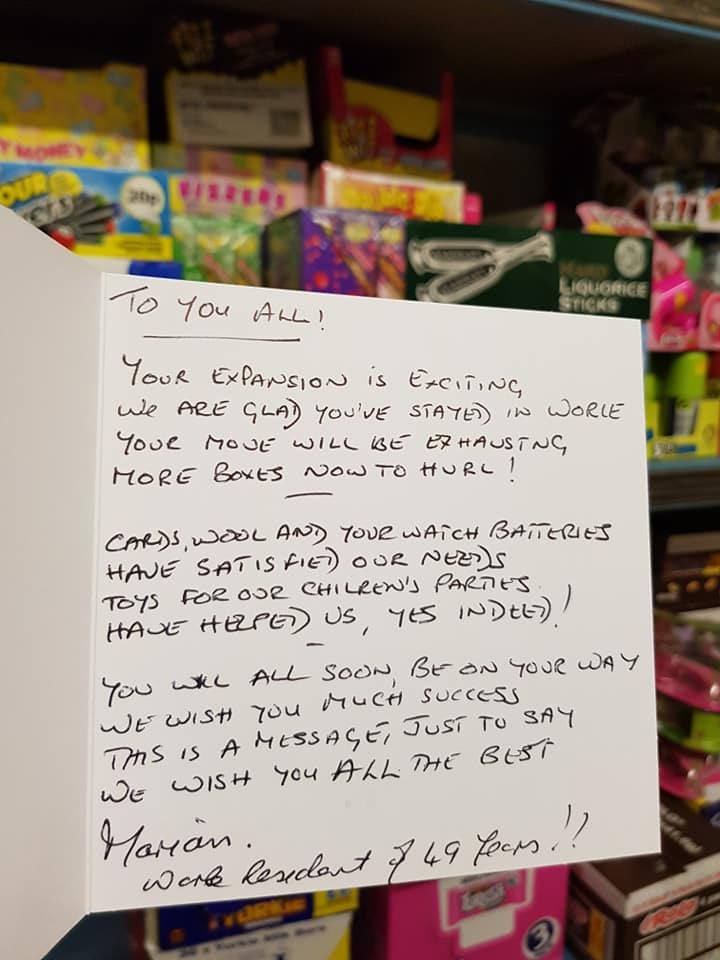 Y MONEY
OUR
20p
FIZZERS
LIQUORICE
STICKS
TO YOU ALL!
YOUR EXPANSION IS EXCITING
WE ARE GLAD YOU'VE STAYED IN WORLE
YOUR MOVE WILL BE EXHAUSTNG
MORE BOXES NOW TO HURL!
CARDS, WOOL AND YOUR WATCH BATTERIES
HAVE SATISFIED OUR NEEDS
TOYS FOR OUR CHILREN'S PARTIES.
HAVE HELPED US, YES INDEED!
YOU WILL ALL SOON, BE ON YOUR WAY
WE WISH YOU MUCH SUCCESS
THIS IS A MESSAGE, JUST TO SAY
WE WISH YOU ALL THE BEST
Marian.
Worle Resident of 49 Years!!
YORKIE
Rolo
3